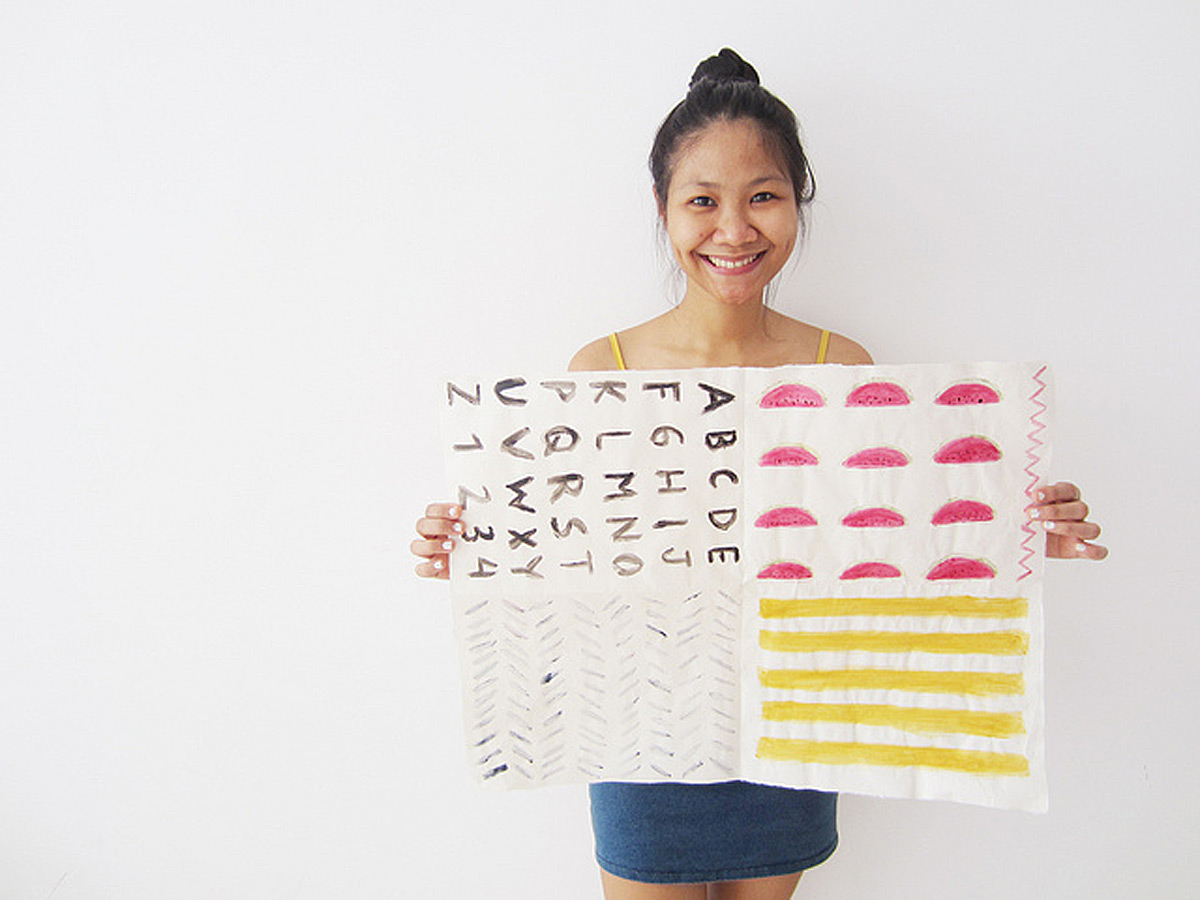 A B C D E
F G H I J
K L M N O
P Q R S T
U V W X Y
Z 1 2 3 4